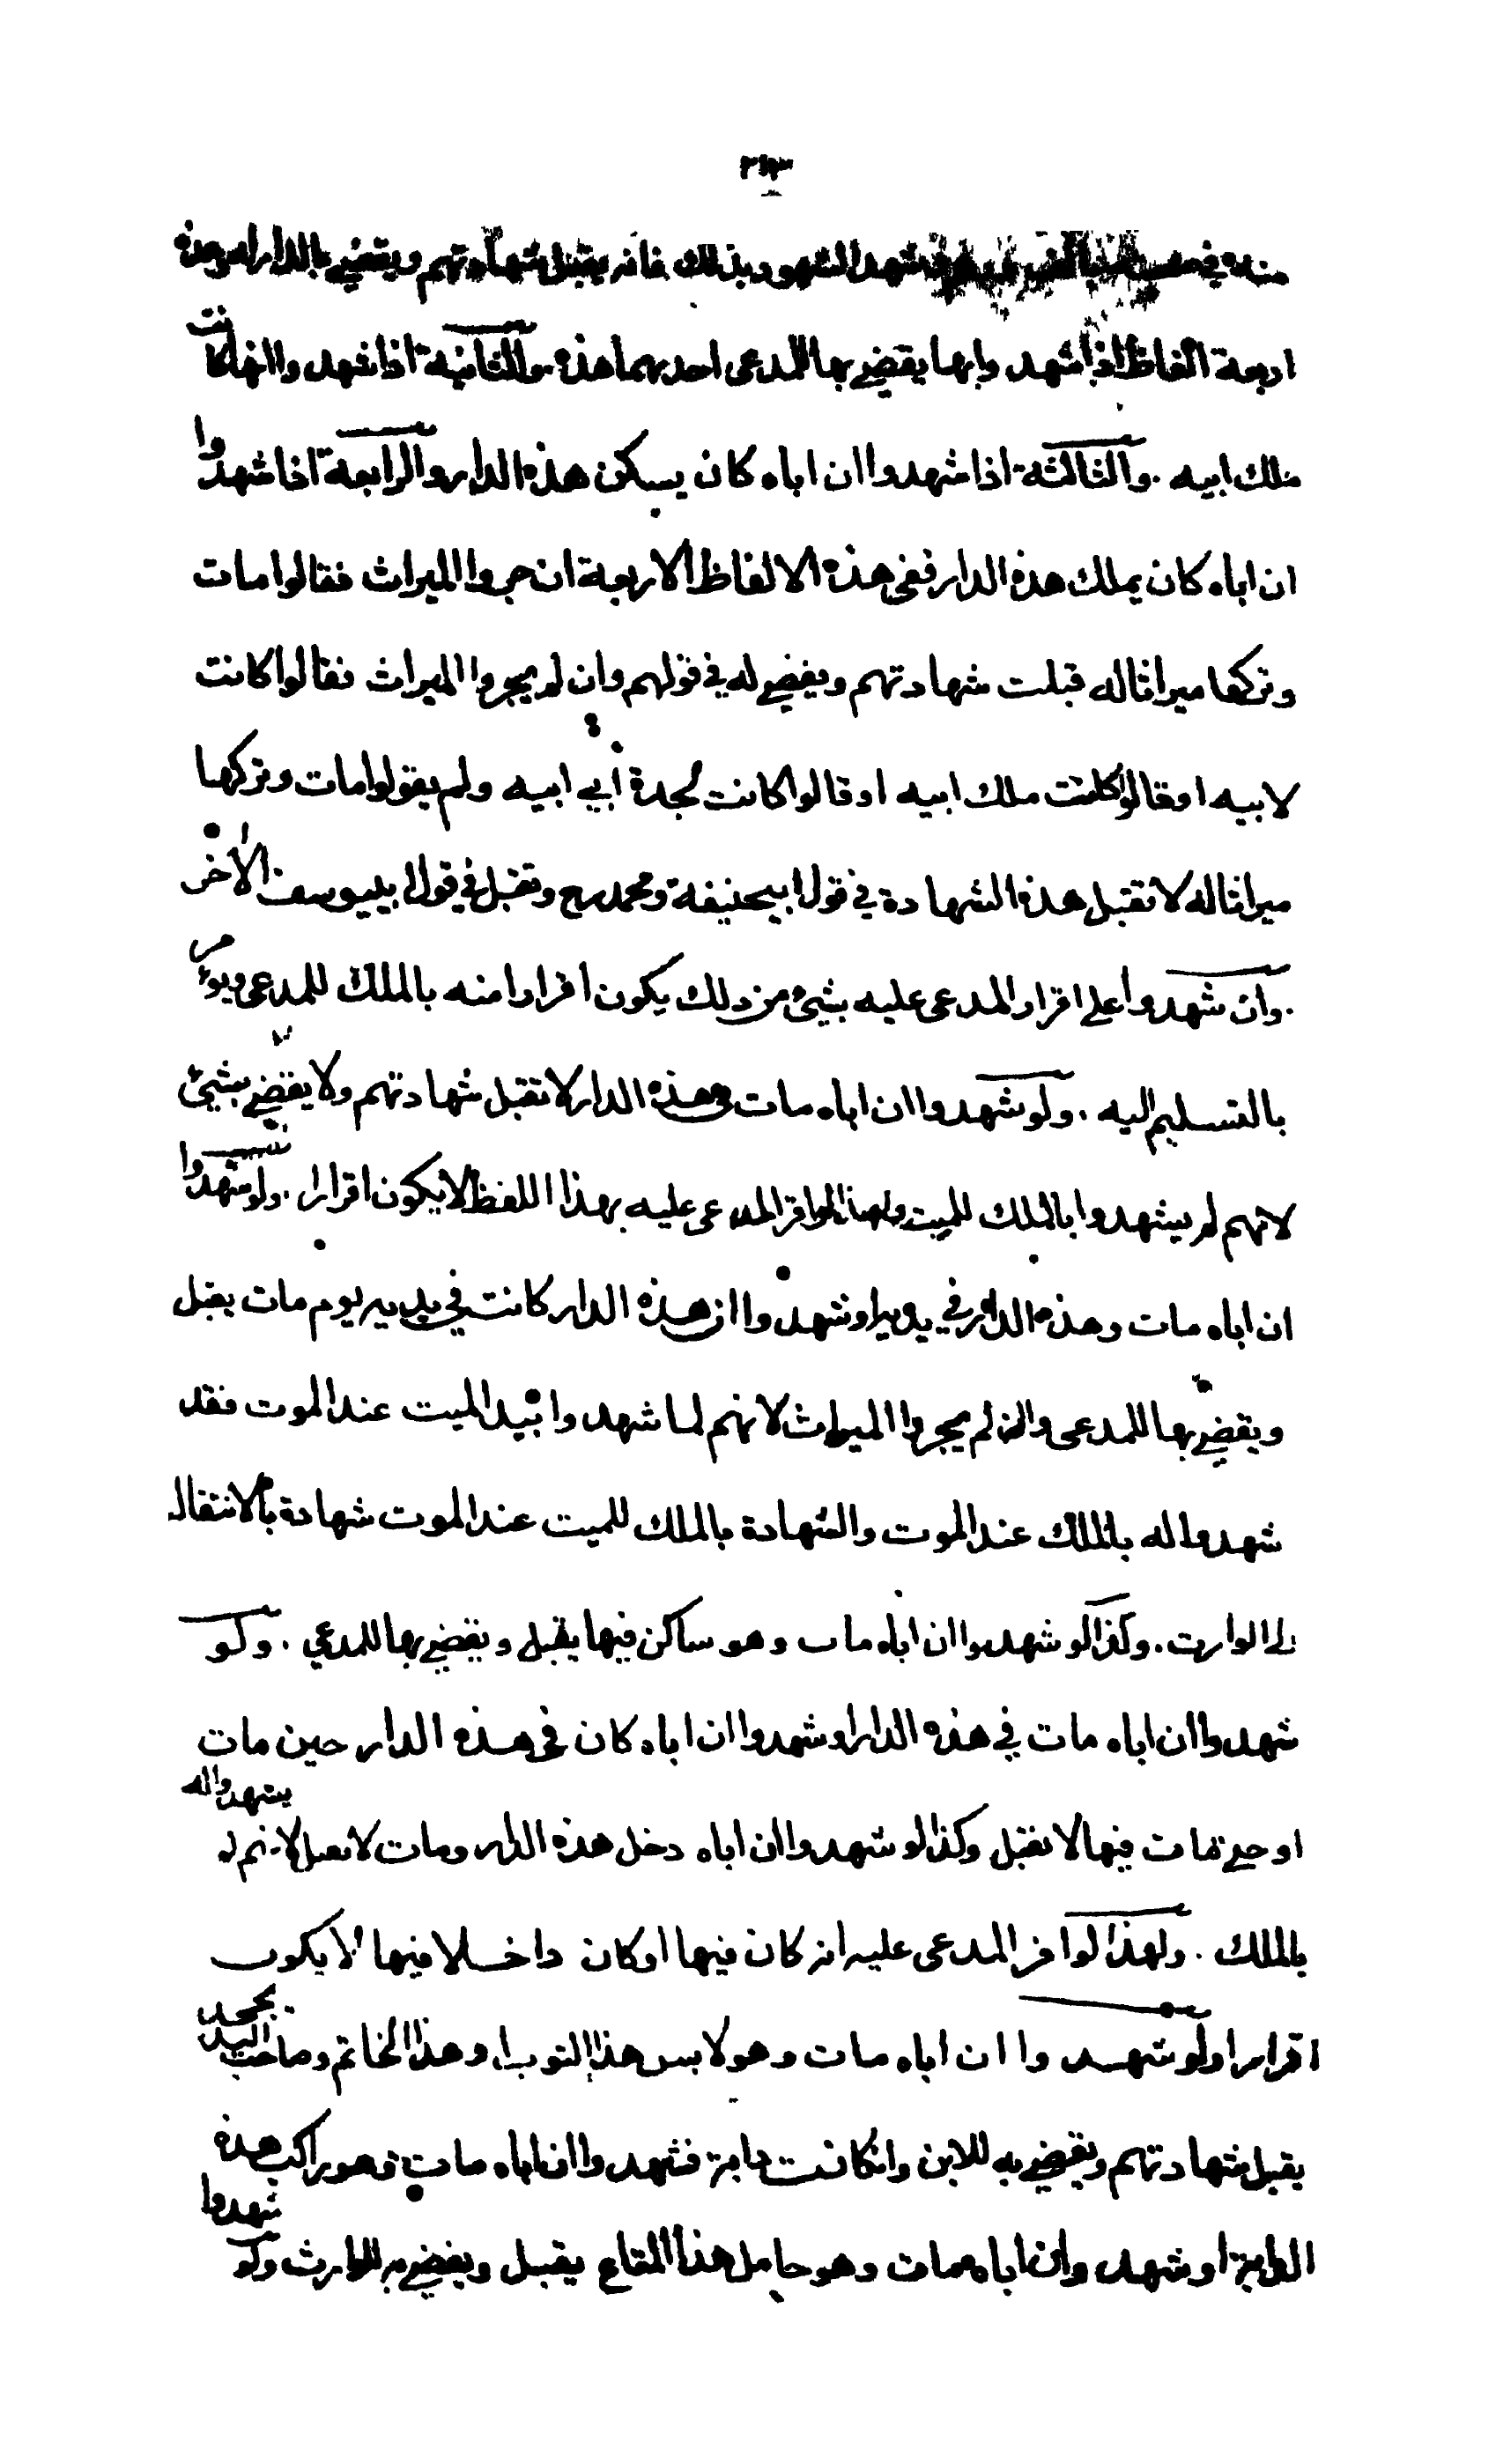 ٣١٣
منه في شهد الشهود بذلك فانه يقبل شهادتهم ويقضي بالدار له وهذه
اربعة الفاظ اذا شهدوا بها يقضي بها للمدعى احديهما هذه والثانية اذا شهدوا انها كانت
ملك ابيه . والثالثة اذا شهدوا ان اباه كان يسكن هذه الدار والرابعة اذا شهدوا
ان اباه كان يملك هذه الدار ففى هذه الالفاظ الاربعة ان جروا الميراث فقالوا مات
وتركها ميراثا له قبلت شهادتهم ويقضي له في قولهم وان لم يجروا الميراث فقالوا كانت
لابيه او قالوا كانت ملك ابيه او قالوا كانت لجدة ابي ابيه ولم يقولوا مات وتركها
ميراثا له لا تقبل هذه الشهادة في قول ابيحنيفة ومحمد رح وتقبل في قول ابييوسف الاخر
. وان شهدوا على اقرار المدعى عليه بشيئ من ذلك يكون اقرارا منه بالملك للمدعى ويؤمر
بالتسليم اليه . ولو شهدوا ان اباه مات في هذه الدار لا تقبل شهادتهم ولا يقضي بشيئ
لانهم لم يشهدوا بالملك للميت ولهذا لو اقر المدعى عليه بهذا اللفظ لا يكون اقرارا . ولو شهدوا
ان اباه مات وهذه الدار في يديه او شهدوا ان هذه الدار كانت في يديه يوم مات يقبل
ويقضي بها للمدعى وان لم يجروا الميراث لانهم لما شهدوا بيد الميت عند الموت فقد
شهدوا له بالملك عند الموت والشهادة بالملك للميت عند الموت شهادة بالانتقال
الى الوارث . وكذا لو شهدوا ان اباه مات وهو ساكن فيها يقبل ويقضي بها للمدعي . ولو
شهدوا ان اباه مات في هذه الدار او شهدوا ان اباه كان في هذه الدار حين مات
او حتى مات فيها لا تقبل وكذا لو شهدوا ان اباه دخل هذه الدار ومات لا تقبل لانهم لم يشهدوا له
بالملك . ولهذا لو اقر المدعى عليه انه كان فيها او كان داخلا فيها لا يكون
اقرارا ولو شهدوا ان اباه مات وهو لابس هذا الثوب او هذا الخاتم وصاحب اليد يجحد
يقبل شهادتهم ويقضي به للابن وانكانت دابة فشهدوا ان اباه مات وهو راكب هذه
الدابة او شهدوا ان اباه مات وهو حامل هذا المتاع يقبل ويقضي به للوارث ولو شهدوا